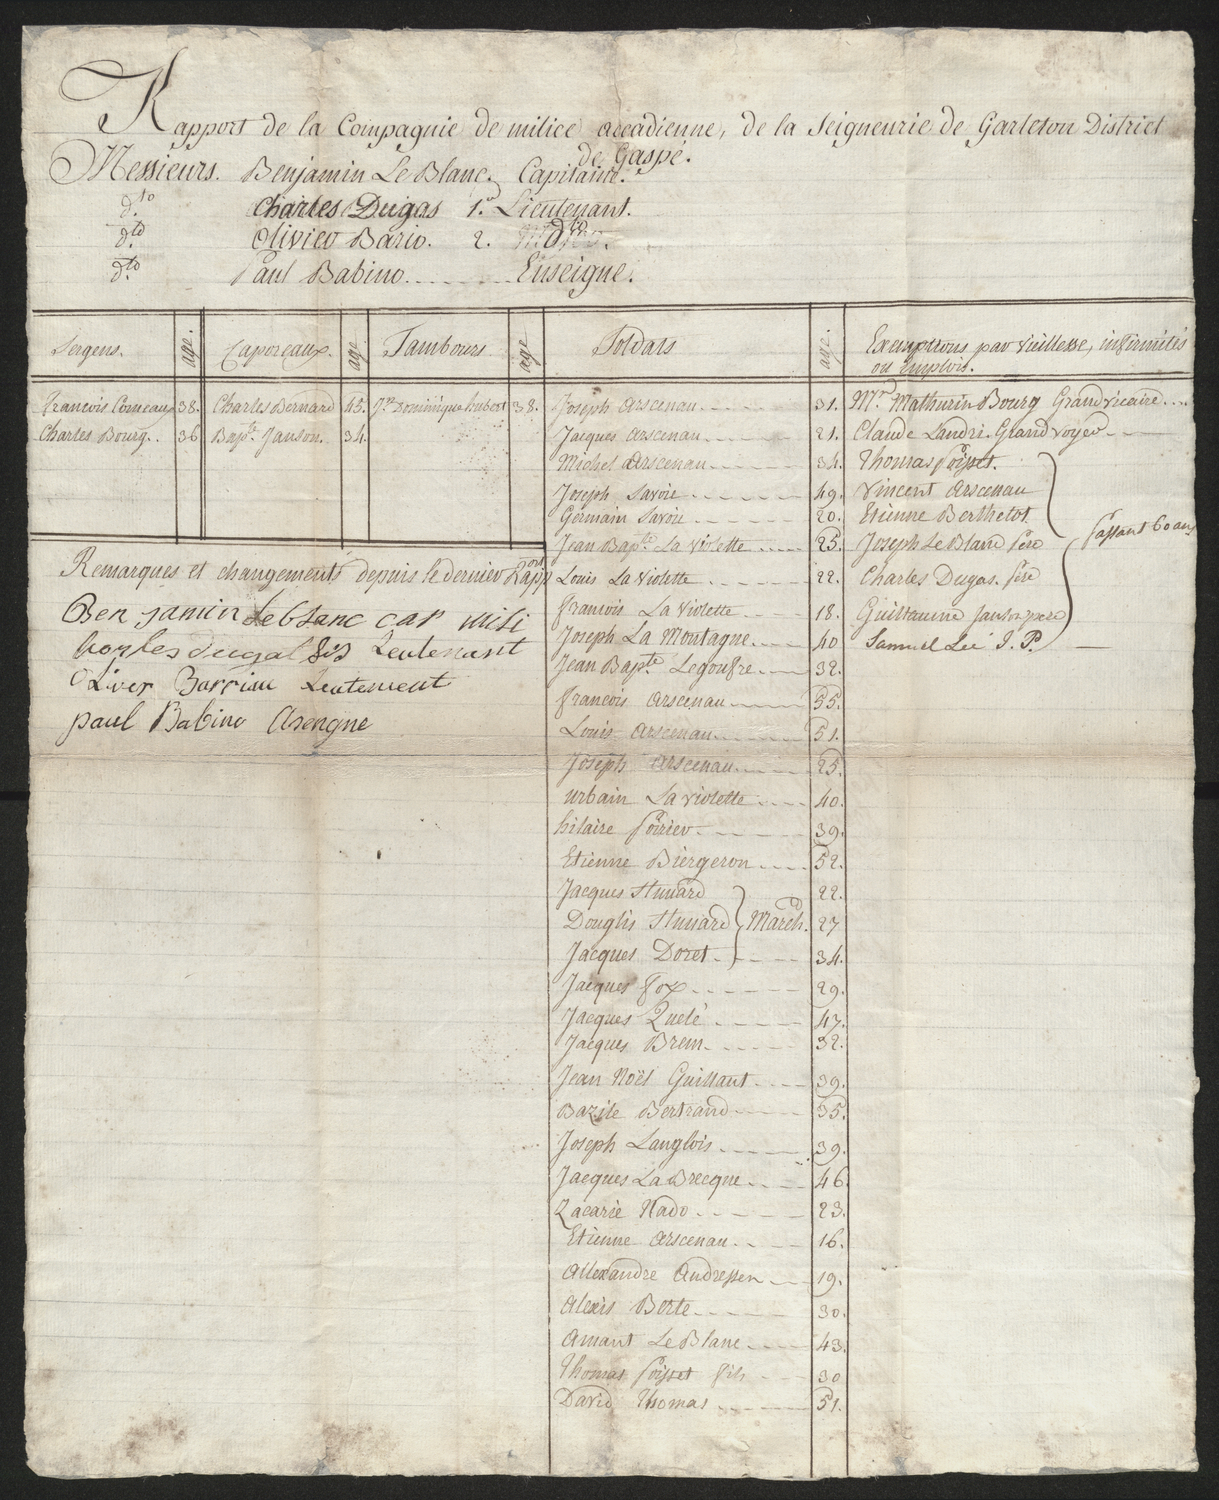 Rapport de la Compagnie de milice accadienne, de la Seigneurie de Carleton District
de Gaspé.
Messieurs. Benjamin Le Blanc. Capitaine.
d.to Charles Dugas 1.r Lieutenant.
d.to Olivier Bario. 2. d.to
d.to Paul Babino........Enseigne.
Sergens. age Caporeaux. age Tambours age Soldats age Exemptions par vieillesse, infirmités
ou Emplois.
Francois Comeau 38. Charles Bernard 45. Jn Dominique hubert 38. Joseph Arscenau 31. Mr. Mathurin Bourg Grand vicaire
Charles Bourg. 36 Bapte. Janson. 34. Jacques Arscenau 21. Claude Landri. Grand voyer
Michel Arscenau 34. Thomas Poisset.
Joseph Savoie 49. Vincent Arscenau
Germain Savoie 20. Etienne Berthelot
Jean Bapte La Violette 25. Joseph Le Blanc Père passant 60 ans
Remarques et changements depuis le dernier Rapport
Louis La Violette 22. Charles Dugas. Père
Benjamin Leblanc cap mili
francois La Violette 18. Guillaume Janson pere
Joseph La Montagne 40 Samuel Lee J. P.
Charles dugas fis Leutenant
Jean Bapte Legoufre 32.
Oliver Barriau Leutement
francois Arscenau 55.
paul Babino Asengne
Louis Arscenau 51.
Joseph Arscenau 25.
urbain La violette 40.
hilaire Poirier 39.
Etienne Biergeron 52.
Jacques Stuuard 22.
Douglis Stuuard March.d 27
Jacques Doret 34.
Jacques Fox 29.
Jacques Quelé 47.
Jacques Brem 32.
Jean Noël Guillaut 39.
Bazile Bertrand 35.
Joseph Langlois 39.
Jacques La Brecque 46
Zacarie Nado 23.
Etienne Arscenau 16.
Allexandre Andressen 19.
Alexis Berte 30.
Amant Le Blanc 43.
Thomas Poisset fils 30
David Thomas 51.